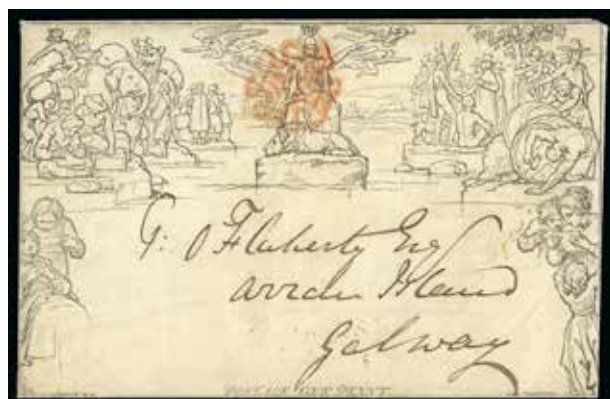 G: O Flaherty Esq
Arran Island
Galway
POSTAGE ONE PENNY.